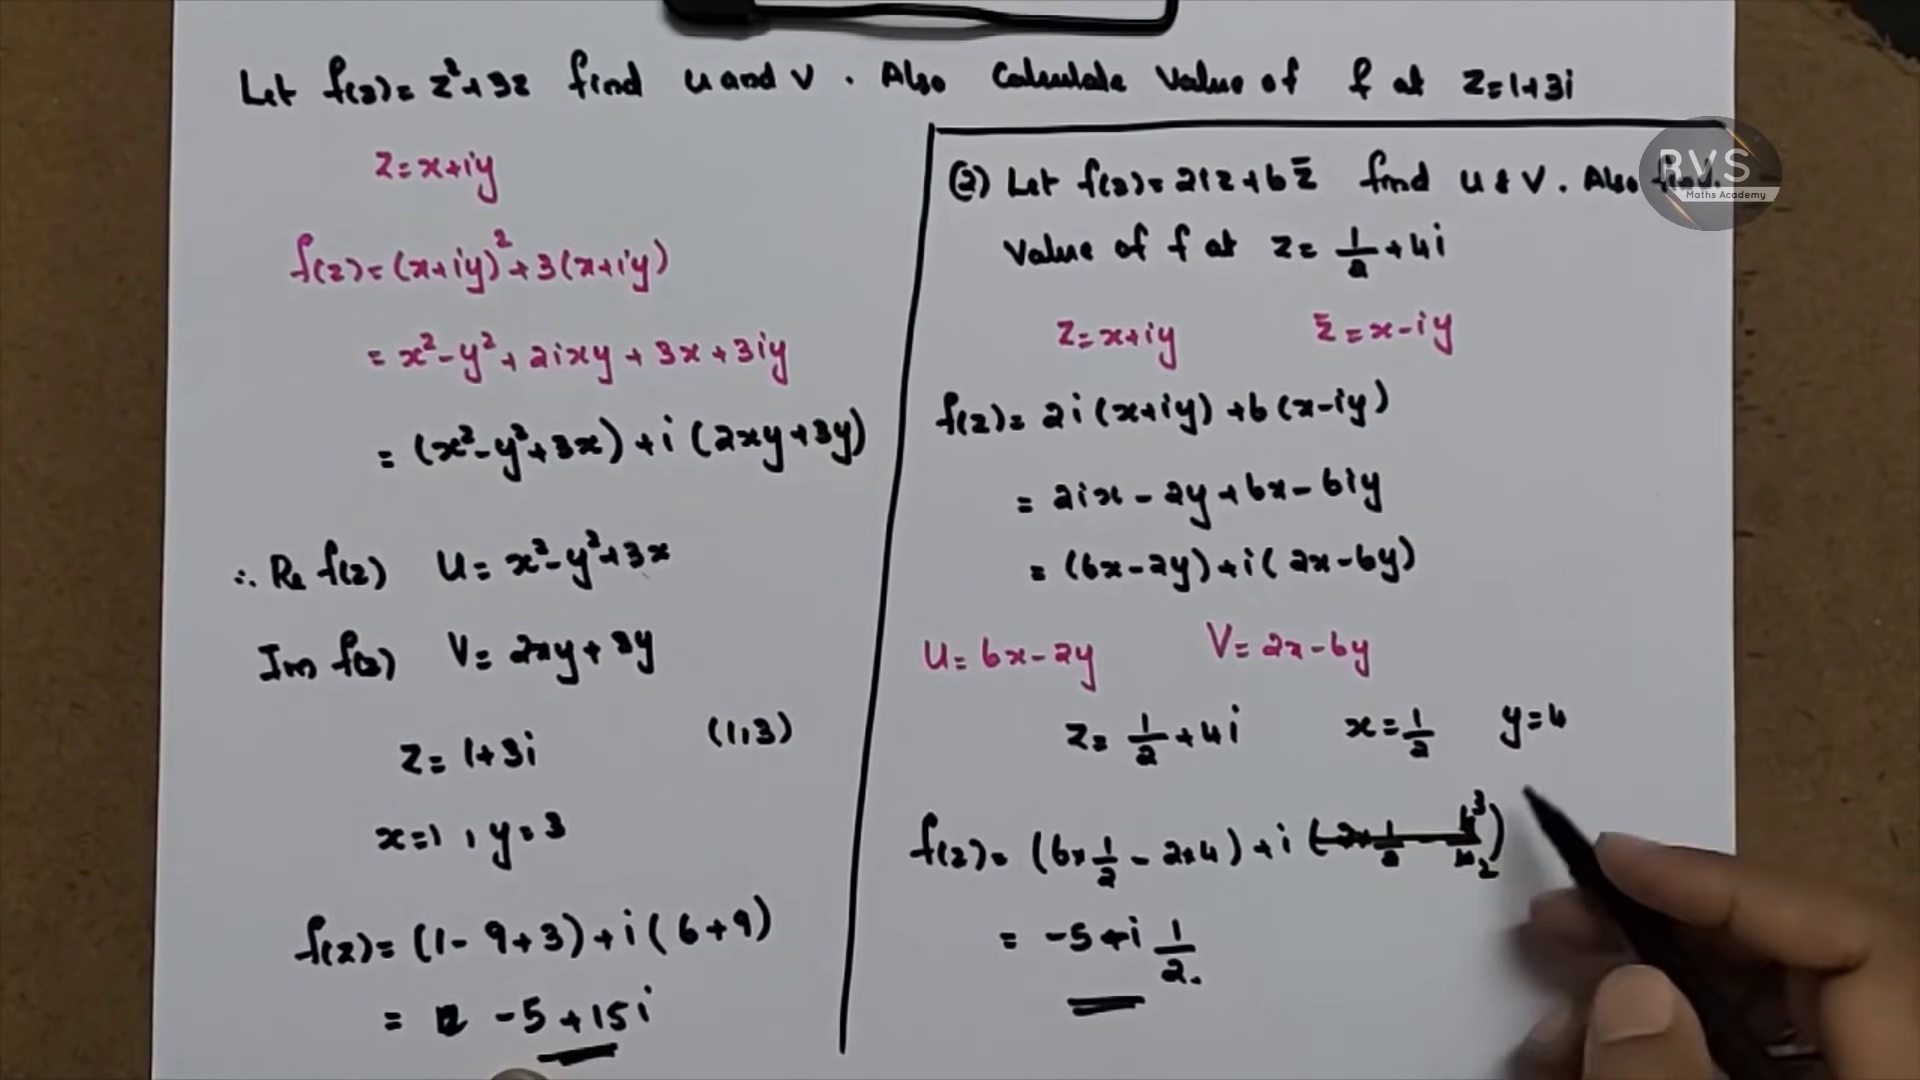 Let f(z)= z²+3z find u and v. Also Calculate Value of f at z=1+3i
z=x+iy
f(z)=(x+iy)²+3(x+iy)
= x²-y²+2ixy+3x+3iy
= (x²-y²+3x)+i(2xy+3y)
∴ Re f(z) u= x²-y²+3x
Im f(z) v= 2xy+3y
z= 1+3i (1,3)
x=1, y=3
f(z)= (1-9+3)+i(6+9)
= -5+15i
(2) Let f(z)= 2iz+6z̄ find u & v. Also find
Value of f at z= 1/2+4i
z=x+iy z̄=x-iy
f(z)= 2i(x+iy)+6(x-iy)
= 2ix-2y+6x-6iy
= (6x-2y)+i(2x-6y)
u= 6x-2y v= 2x-6y
z= 1/2+4i x=1/2 y=4
f(z)= (6×1/2-2×4)+i(
= -5+i 1/2.
RVS
Maths Academy